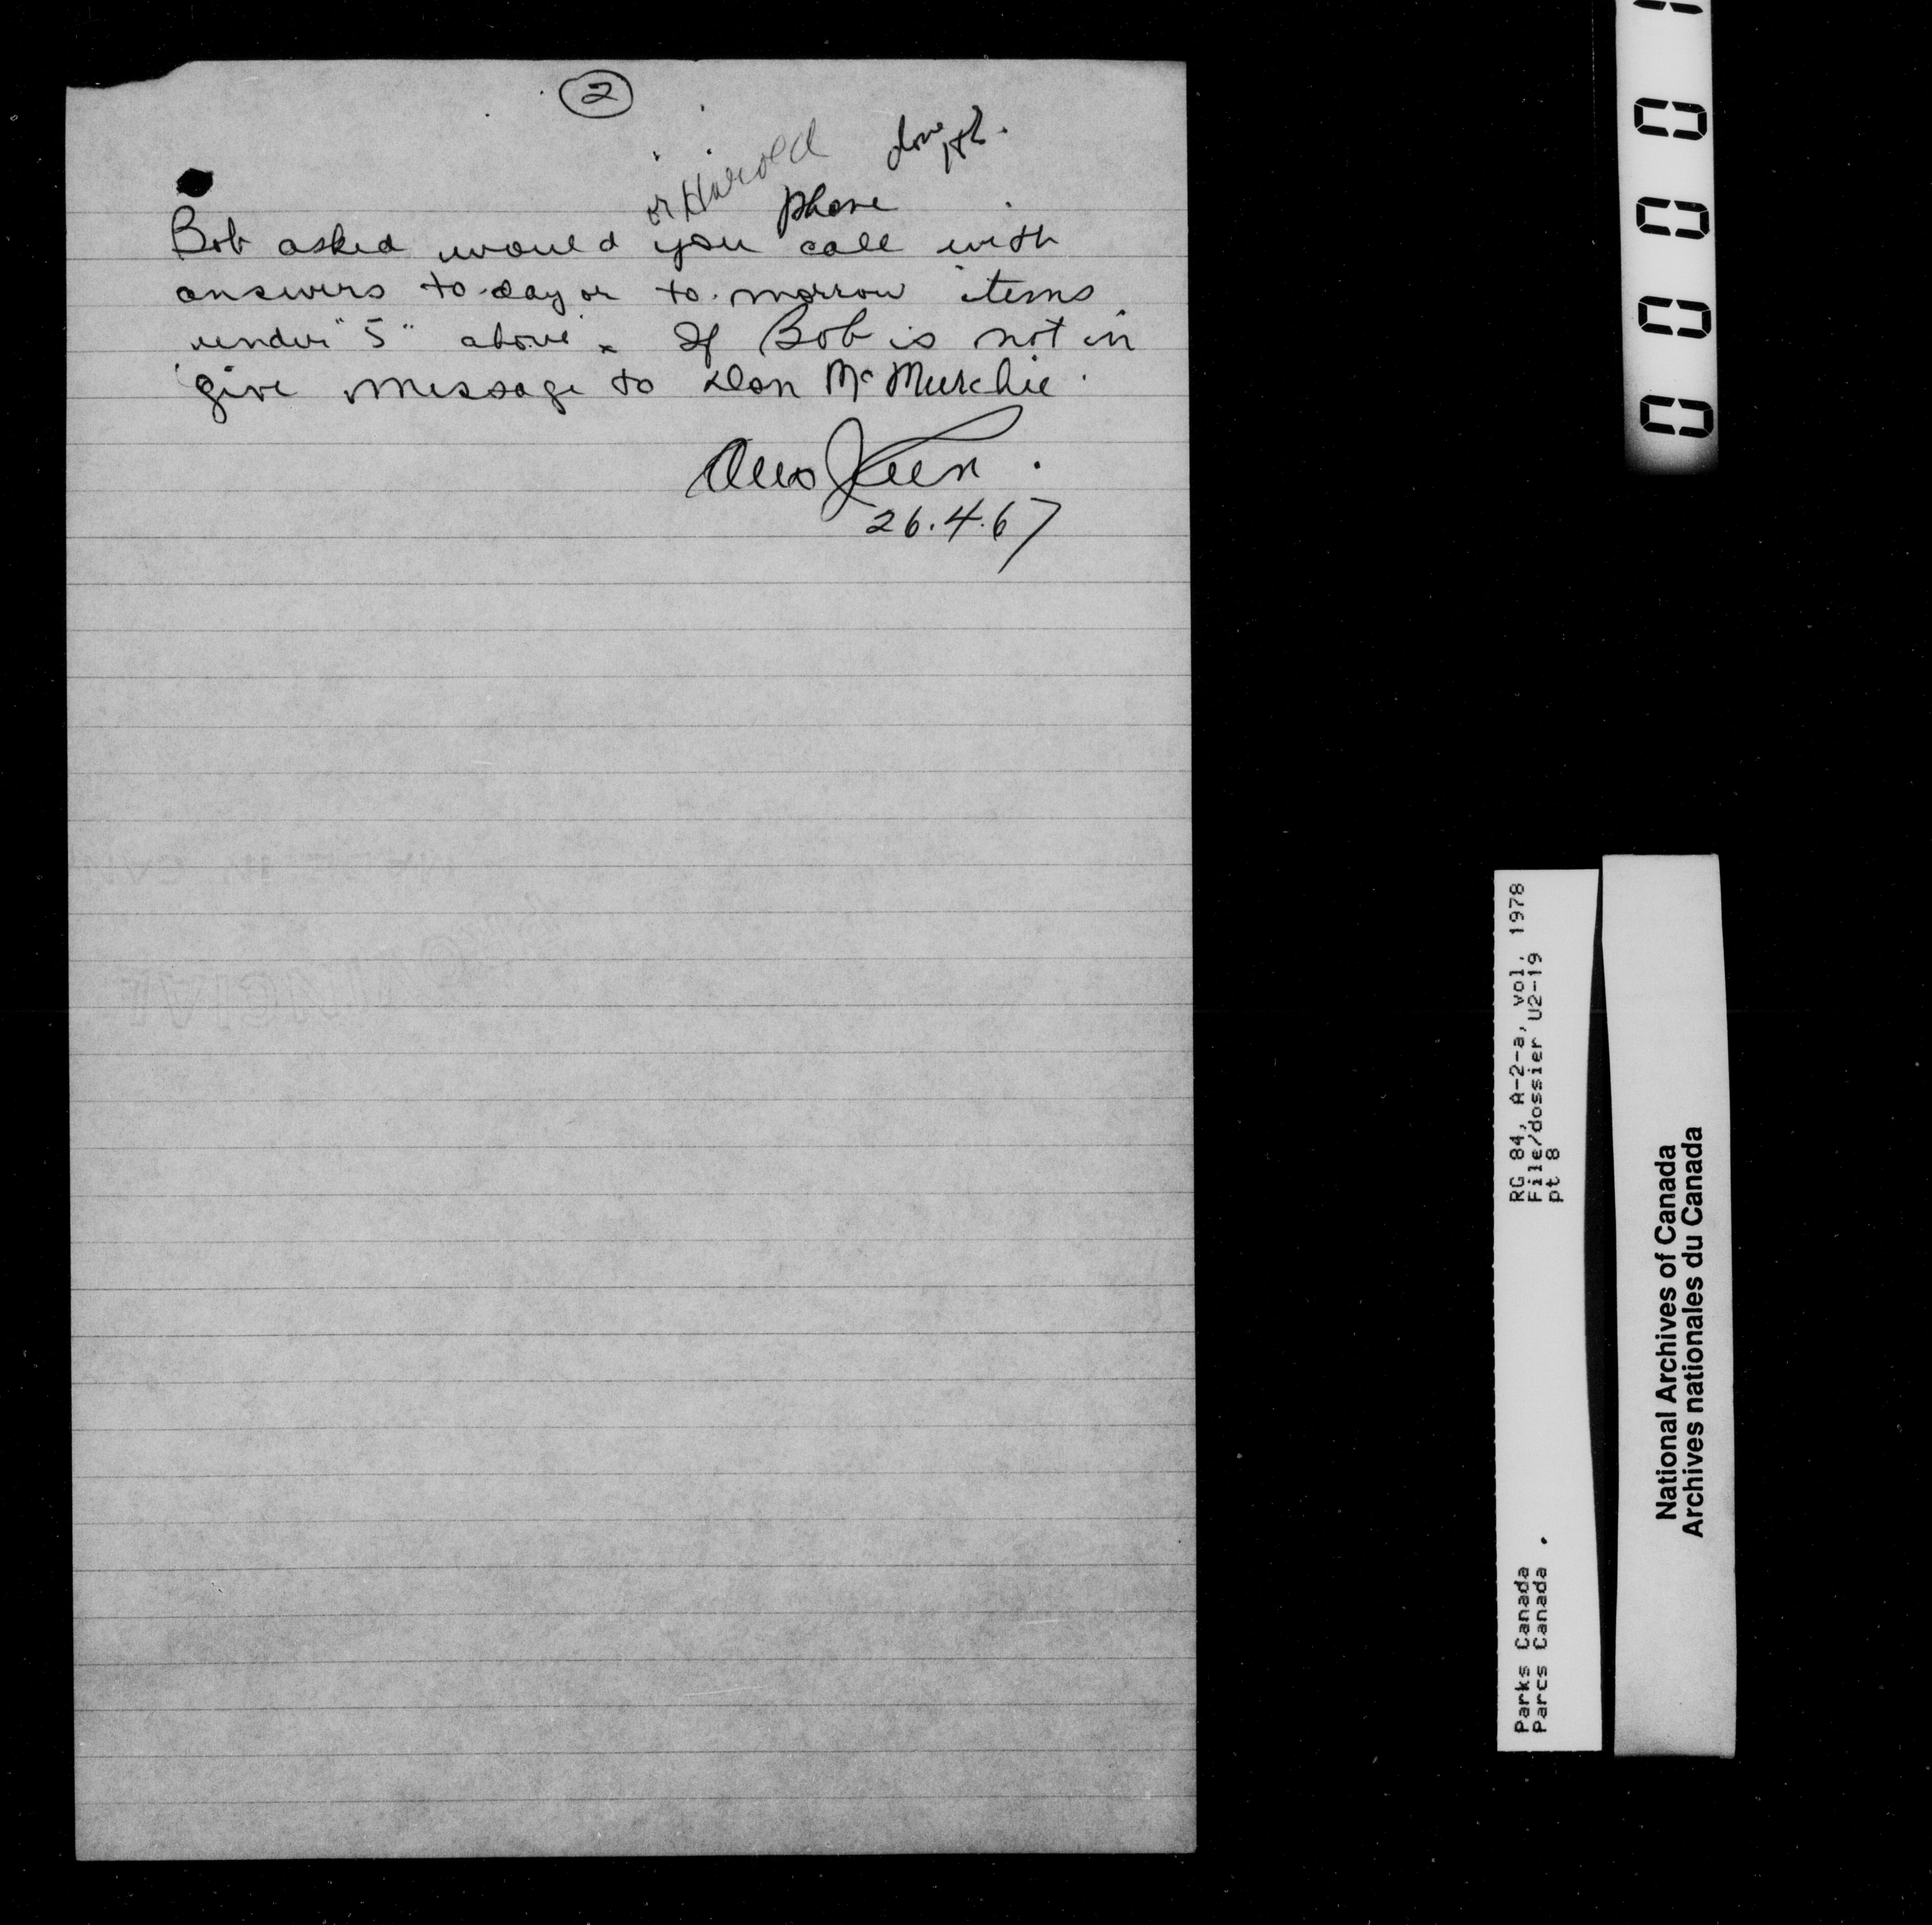 2
or Harold
done
phone
Bob asked would you call with
answers to-day or to-morrow items
under "5" above. If Bob is not in
give message to Don McMurchie.
26.4.67
0 0 0 0 1
RG 84, A-2-a, vol. 1978
File/dossier U2-19
pt 8
Parks Canada
Parcs Canada
National Archives of Canada
Archives nationales du Canada